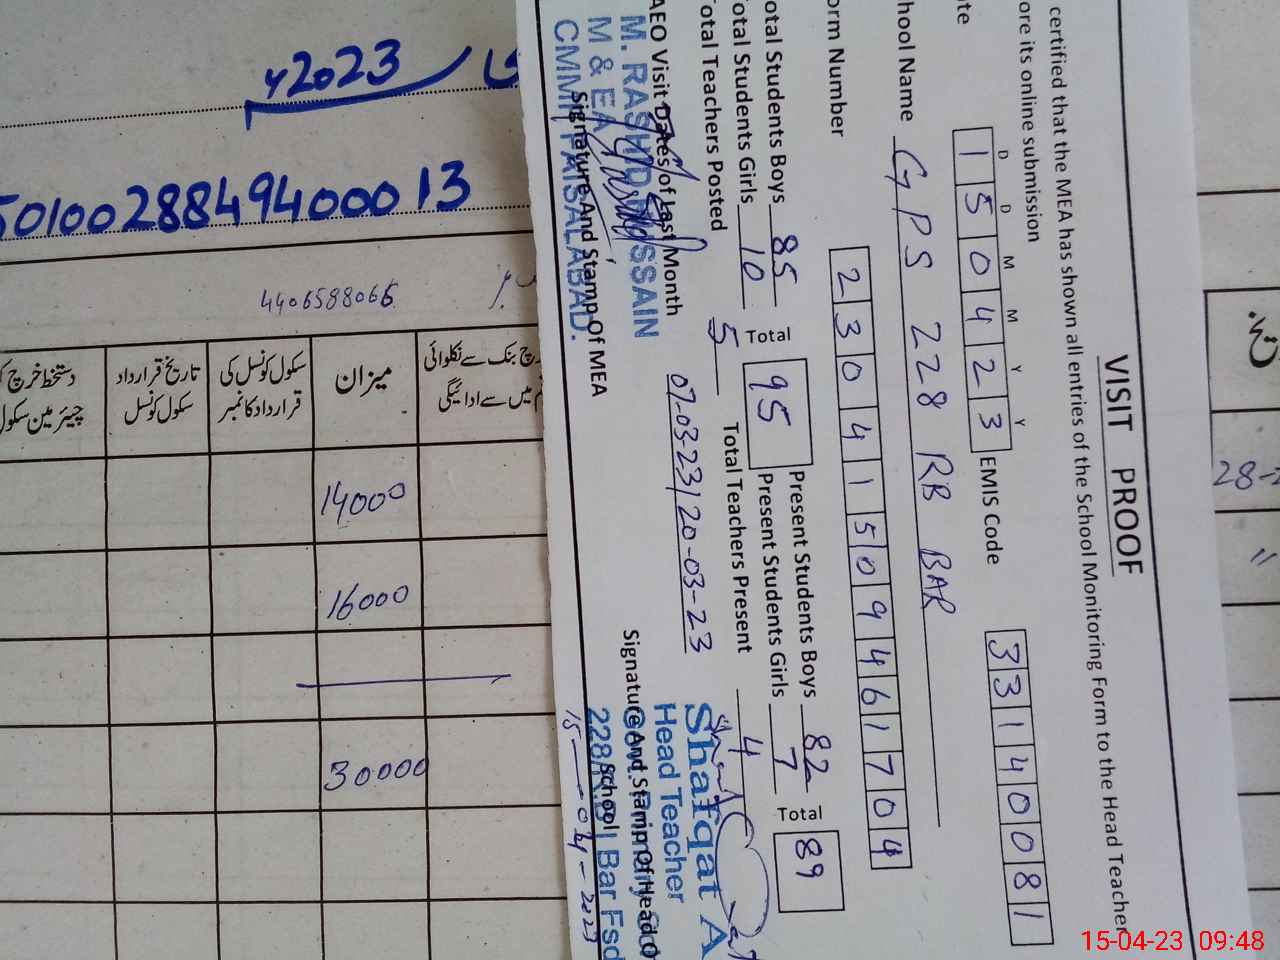 y2023
50100288494000 13
4406588066
رچ بنک سے نکلوائی
میں سے ادائیگی
میزان
سکول کونسل کی
قرارداد کا نمبر
تاریخ قرارداد
سکول کونسل
دستخط خرچ
چیئرمین سکول
14000
16000
30000
28-
"
VISIT PROOF
certified that the MEA has shown all entries of the School Monitoring Form to the Head Teacher
ore its online submission
D D M M Y Y
ate 1 5 0 4 2 3 EMIS Code 3 3 1 4 0 0 8 1
hool Name GPS 228 RB BAR
orm Number 2 3 0 4 1 5 0 9 4 6 1 7 0 4
otal Students Boys 85 Total 95 Present Students Boys 82 Total 89
otal Students Girls 10 Present Students Girls 7
otal Teachers Posted 5 Total Teachers Present 4
AEO Visit Dates of Last Month 07-03-23/20-03-23
M. RASHID HUSSAIN
M & EA
CMMF FAISALABAD.
Signature And Stamp Of MEA
Shafqat A
Head Teacher
Signature And Stamp Of Head O
School
228 R.B Bar Fsd
15-04-2023
15-04-23 09:48